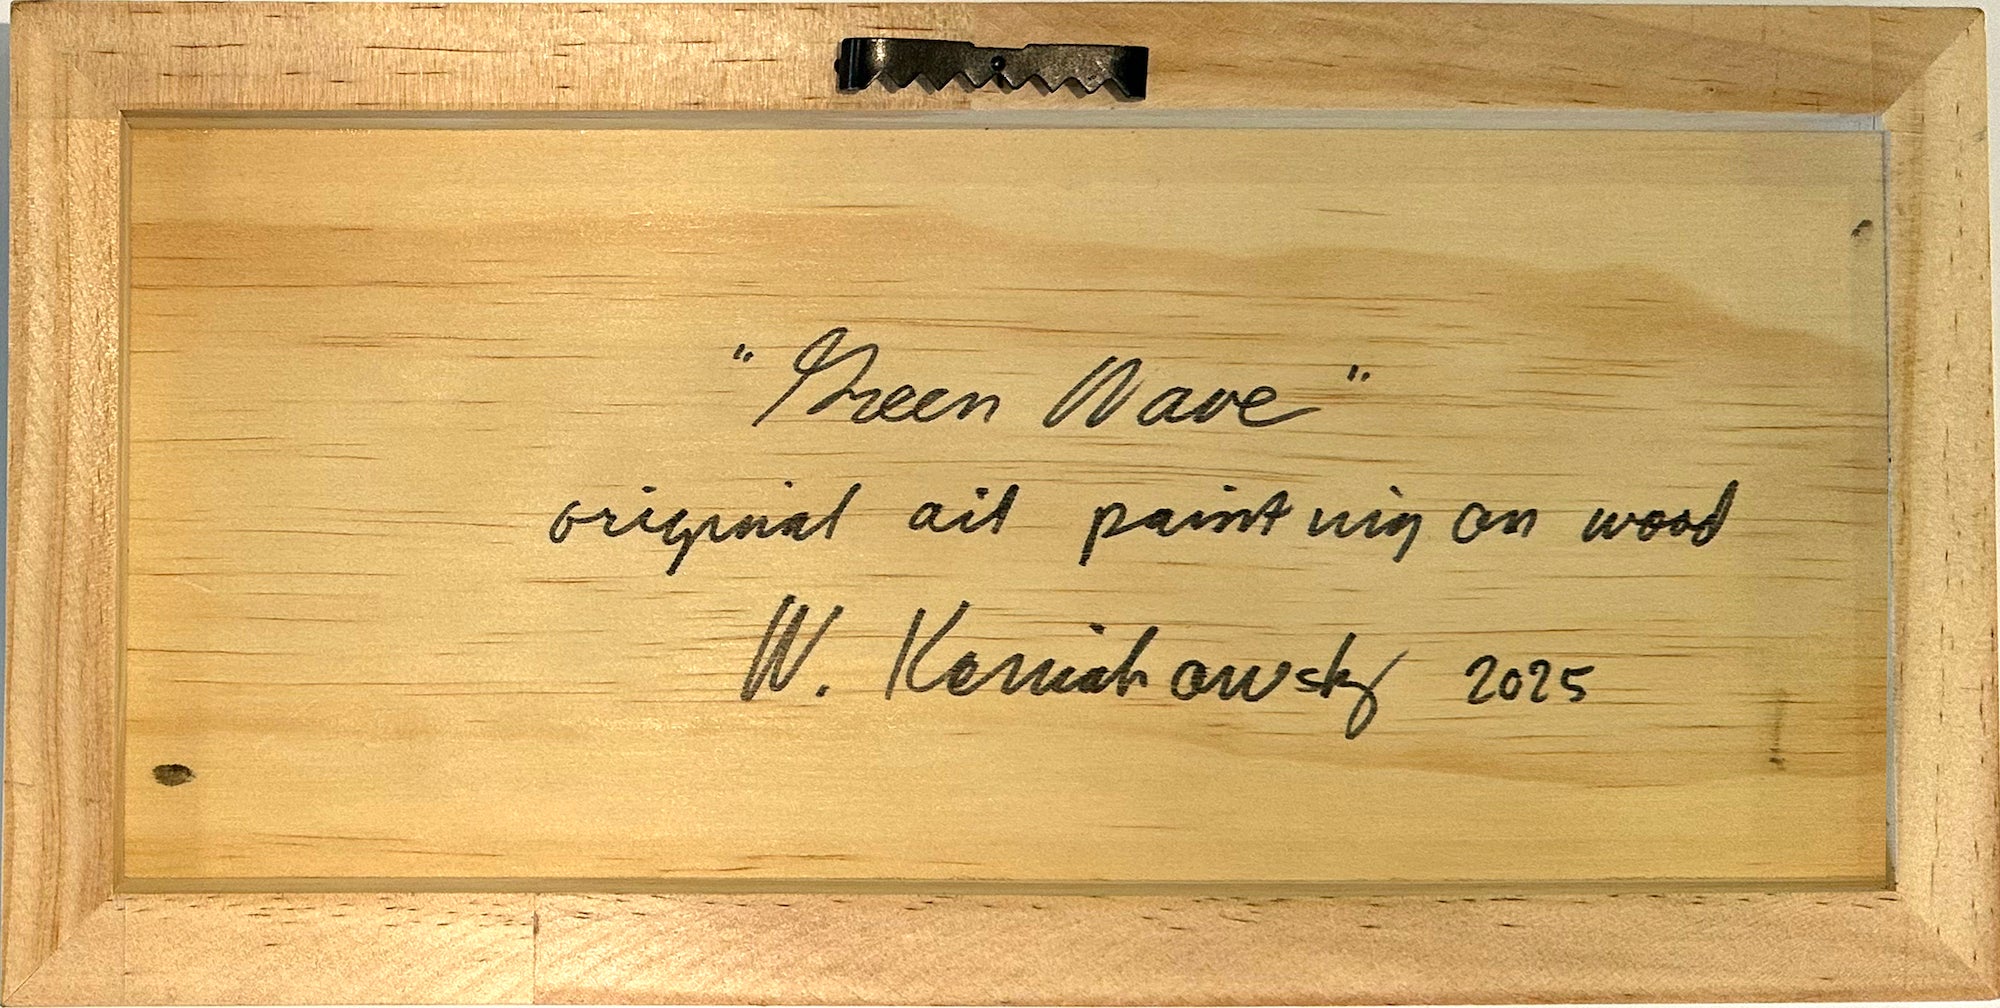 "Green Wave"
original oil painting on wood
W. Koniakowsky 2025